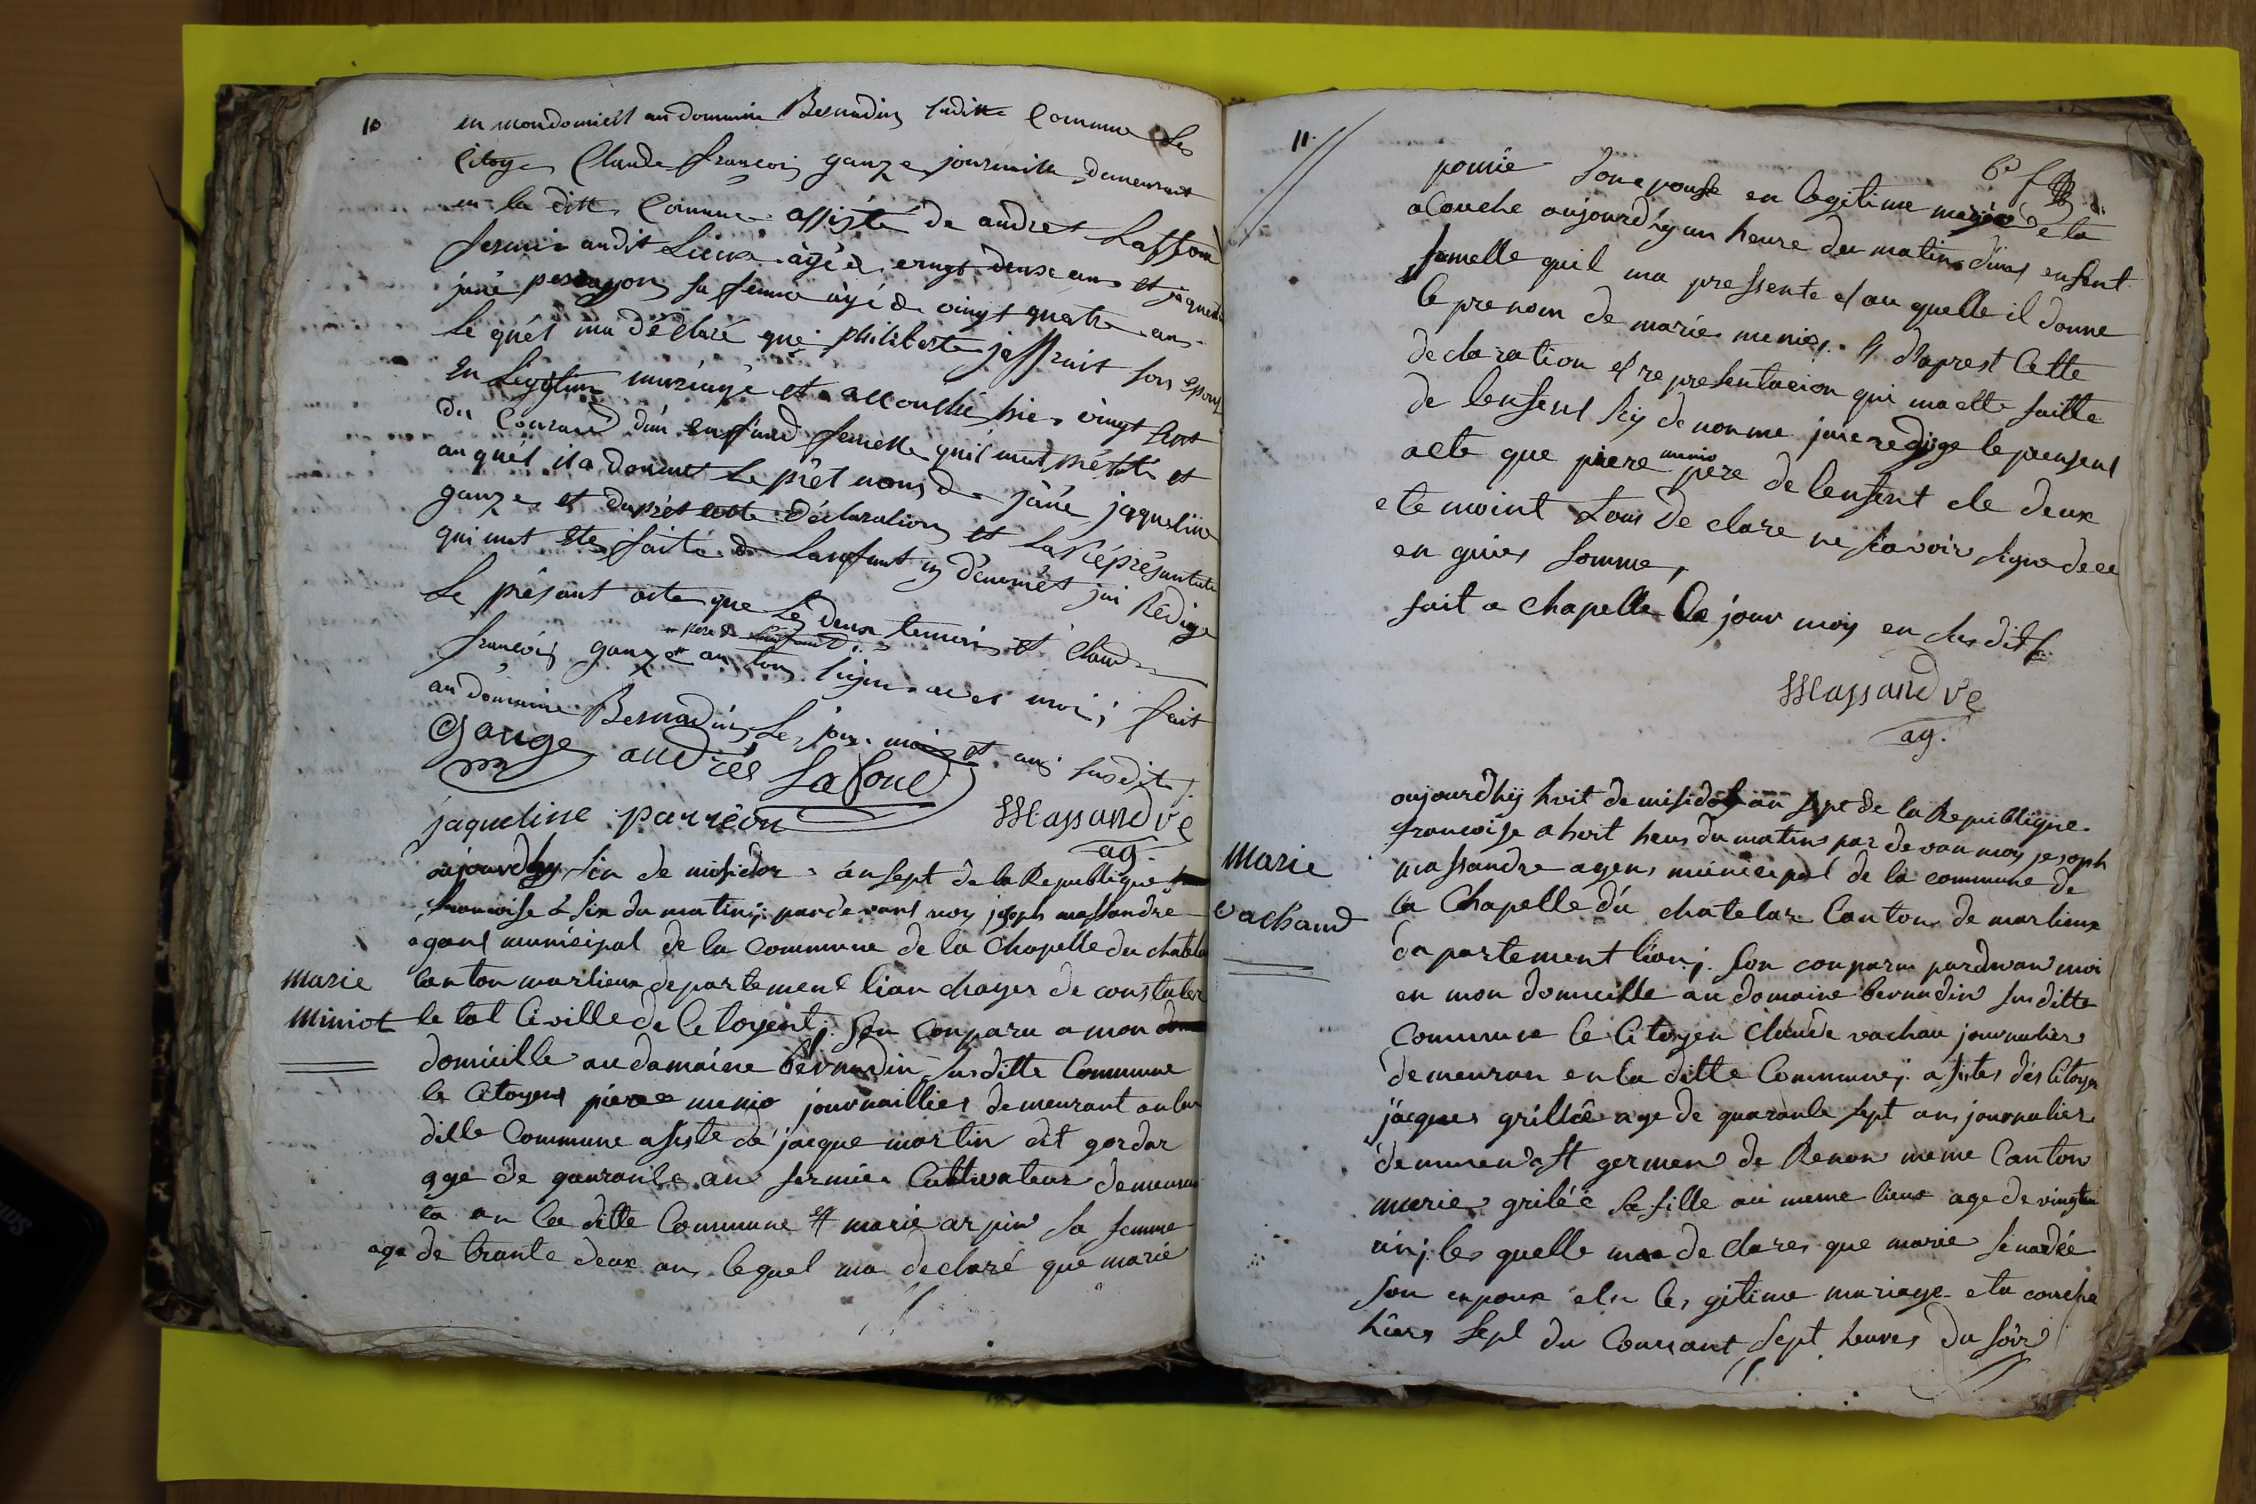 10
en mon domicil au domaine Bernadin suditte Commune Le
Citoye Claude françoi ganze journaill demeurant
en la ditte Commune assisté de andret Laffond
fermie audit Lieux âgé de vingt deux ans et jaqueli
jane su femme âgé de vingt quatre ans
Le quél ma déclaré que philiberte jeffruit son epous
En Legitim mariage et accouché hier vingt
du Courand d'un enffand femelle qu'il mat et
au quél il a donnet Le prét nom de jâne jaqueline
ganze et daprés cette déclaration et La Répresantati
qui mat ete faite de Lanfant j'ai Rédige
Le présant acte que Les deux temoin et claude
père de Lanfant
françois ganze on tous signe avec moi ; fait
au domaine Bernadin Le jour mois et ans susdit
Gange andrés Lafond
jaqueline parréon Massandre
ag.
aujourdhy six de misidor ânsept de la Republique
francoise à six du matin pardevant moy joseph massandre
agant municipal de la commune de la Chapelle du chatela
Marie
Miniot
Canton marlieux departement lian charger de constater
le tat Civille de Citoyent ; son conparu a mon
domicille au domaine bernardin susditte Commune
le Citoyent piere menio journaillier demeurant en la
ditte Commune asisté de jacque martin dit gordar
age de quarante an fermier Cultivateur demeuran
en la ditte Commune et marie arpin sa femme
age de trante deux ans lequel ma declaré que marie
11.
pomié son epouse en legitime mariage eta
acouche aujourd'hy un heure du matin d'une enfent
femelle quil ma pressente et au quelle il donne
le prenom de marie menier. et daprest Cette
declaration et representacion qui ma ette faitte
de lenfent sy denonme jai redige le present
menio
acte que piere pere de lenfent ele deux
etemoint tous declare ne scavoir signe de ce
en quies somme,
fait a chapelle le jour moy en susdit
Massandre
ag.
Marie
Vachaud
aujourdhy huit de misidor an sept de la Republique
francoise a huit heus du matin par devan moy jesoph
massandre agent municipal de la commune de
la Chapelle du chatelar Canton de marlieux
departement lion ; son conparu pardevan moi
en mon domicille au domaine bernadin susditte
Commune le Citoyen Claude vachau journalier
demeuran en la ditte Commune asistes des Citoye
jacques grillée age de quarante sept ans journalier
demeuran a st germen de Renon meme Canton
marie griléé sa fille au meme lieux age de vingt
un ; les quelle ma declarer que marie
son epoux en legitime mariage eta couche
hiers sept du Courant sept heures du soir